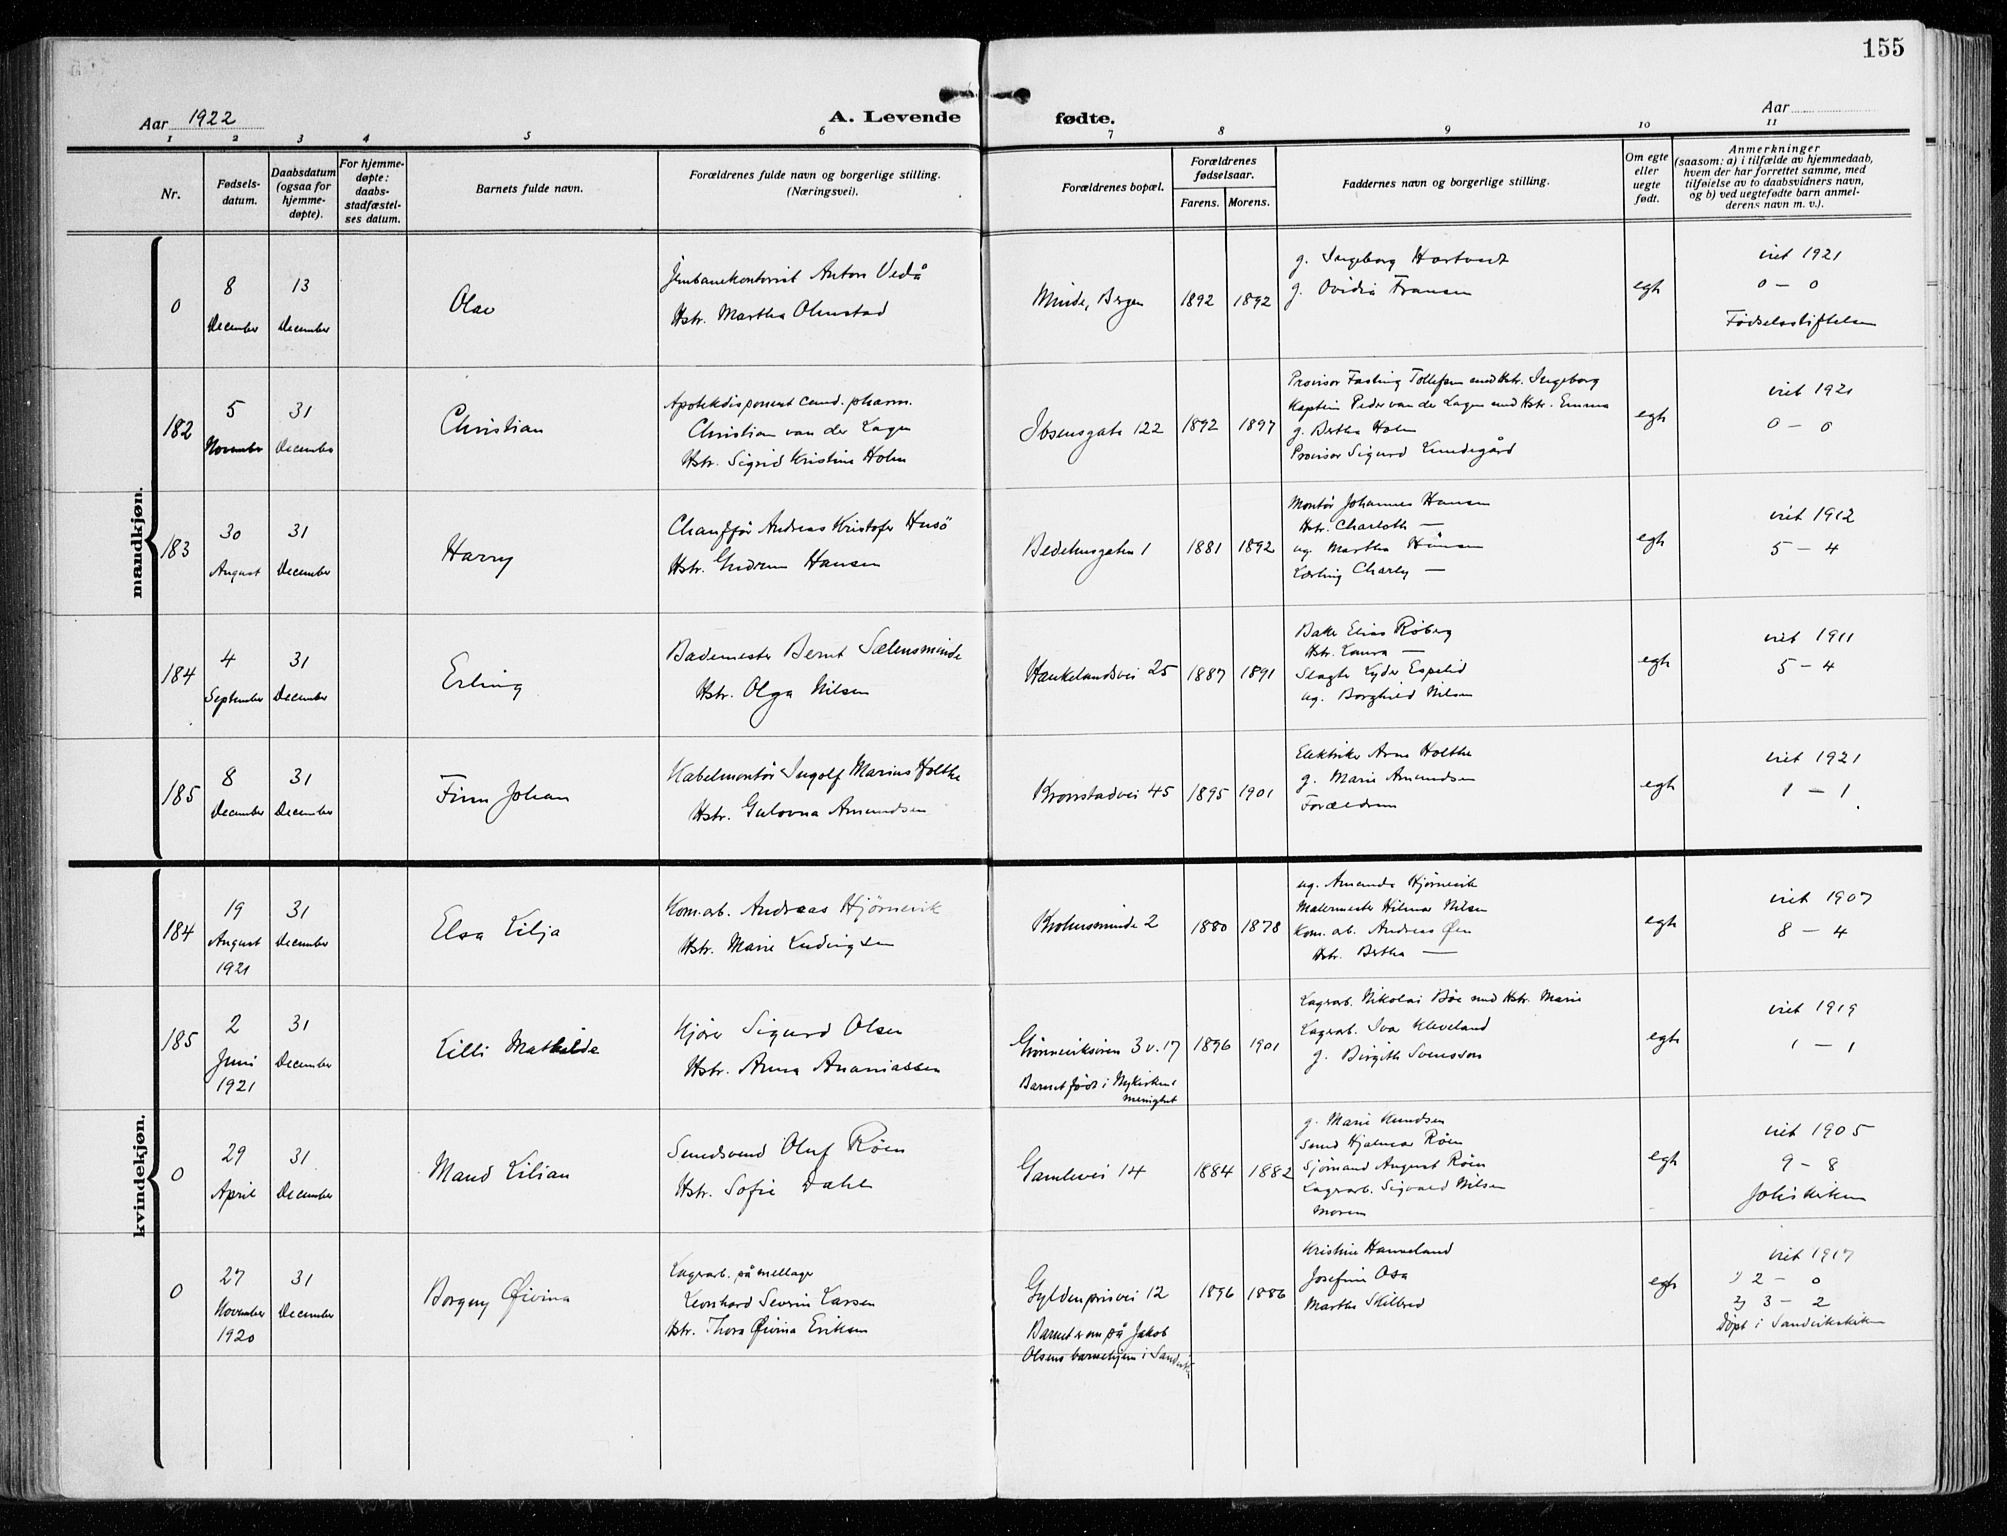 155
Aar 1922
A. Levende fødte.
Aar
1 2 3 4 5 6 7 8 9 10 11
Nr.
Fødsels-
datum.
Daabsdatum
(ogsaa for
hjemme-
døpte).
For hjemme-
døpte:
daabs-
stadfæstel-
ses datum.
Barnets fulde navn.
Forældrenes fulde navn og borgerlige stilling.
(Næringsvei).
Forældrenes bopæl.
Forældrenes
fødselsaar.
Farens. Morens.
Faddernes navn og borgerlige stilling.
Om egte
eller
uegte
født.
Anmerkninger
(saasom: a) i tilfælde av hjemmedaab,
hvem der har forrettet samme, med
tilføielse av to daabsvidners navn,
og b) ved uegtefødte barn anmel-
derens navn m. v.).
mandkjøn.
0
8
December
13
December
Olav
Jernbanekontorist Anton Vedå
Hstr. Martha Olmstad
Minde, Bergen
1892 1892
g. Ingeborg Hartvedt
g. Ovidia Fransen
egte
viet 1921
0 — 0
Fødselsstiftelsen
182
5
November
31
December
Christian
Apotekdisponent cand. pharm.
Christian van der Lagen
Hstr. Sigrid Kristine Holm
Ibsensgate 122
1892 1897
Provisor Fasting Tollefsen med Hstr. Ingeborg
Kaptein Peder van der Lagen med Hstr. Emma
g. Bertha Holm
Provisor Sigurd Lundegård
egte
viet 1921
0 — 0
183
30
August
31
December
Harry
Chauffør Andreas Kristofer Husö
Hstr. Gudrun Hansen
Bedehusgaten 1
1881 1892
Montør Johannes Hansen
Hstr. Charlotte —
ug. Martha Hansen
Lærling Charley —
egte
viet 1912
5 — 4
184
4
September
31
December
Erling
Bademester Bernt Sælensminde
Hstr. Olga Nilsen
Haukelandsvei 25
1887 1891
Baker Elias Røberg
Hstr. Laura —
Slagter Lyder Espelid
ug. Borghild Nilsen
egte
viet 1911
5 — 4
185
8
December
31
December
Finn Johan
Kabelmontør Ingolf Marius Holthe
Hstr. Gulovna Amundsen
Kronstadvei 45
1895 1901
Elektriker Arne Holthe
g. Marie Amundsen
Forældrene
egte
viet 1921
1 — 1
kvindekjøn.
184
19
August
1921
31
December
Elsa Lilja
Kom. arb. Andreas Hjørnevik
Hstr. Marie Ludvigsen
Krohnsminde 2
1880 1878
ug. Amanda Hjørnevik
Malermester Hilmar Nilsen
Kom. arb. Andreas Øen
Hstr. Bertha —
egte
viet 1907
8 — 4
185
2
Juni
1921
31
December
Lilli Mathilde
Kjører Sigurd Olsen
Hstr. Anna Ananiassen
Grønneviksøren 3 v. 17
Barnet født i Nykirkens
menighet
1896 1901
Lagerarb. Nikolai Bøe med Hstr. Marie
Lagerarb. Ivar Kleveland
g. Birgith Svensson
egte
viet 1919
1 — 1
0
29
April
31
December
Maud Lilian
Smedsvend Oluf Røen
Hstr. Sofie Dahl
Gamlevei 14
1884 1882
g. Marie Knudsen
Smed Hjalmar Røen
Sjømand August Røen
Lagerarb. Sigvald Nilsen
Moren
egte
viet 1905
9 — 8
Johskirken
0
27
November
1920
31
December
Borgny Øivina
Lagerarb. på mellager
Leonhard Severin Larsen
Hstr. Thora Øivina Eriksen
Gyldenprisvei 12
Barnet er om på Jakob
Olsens barnehjem i Sandviken
1896 1886
Kristine Hauveland
Josefine Osa
Marthe Skilbred
egte
viet 1917
1) 2 — 0
2) 3 — 2
Døpt i Sandvikskirken